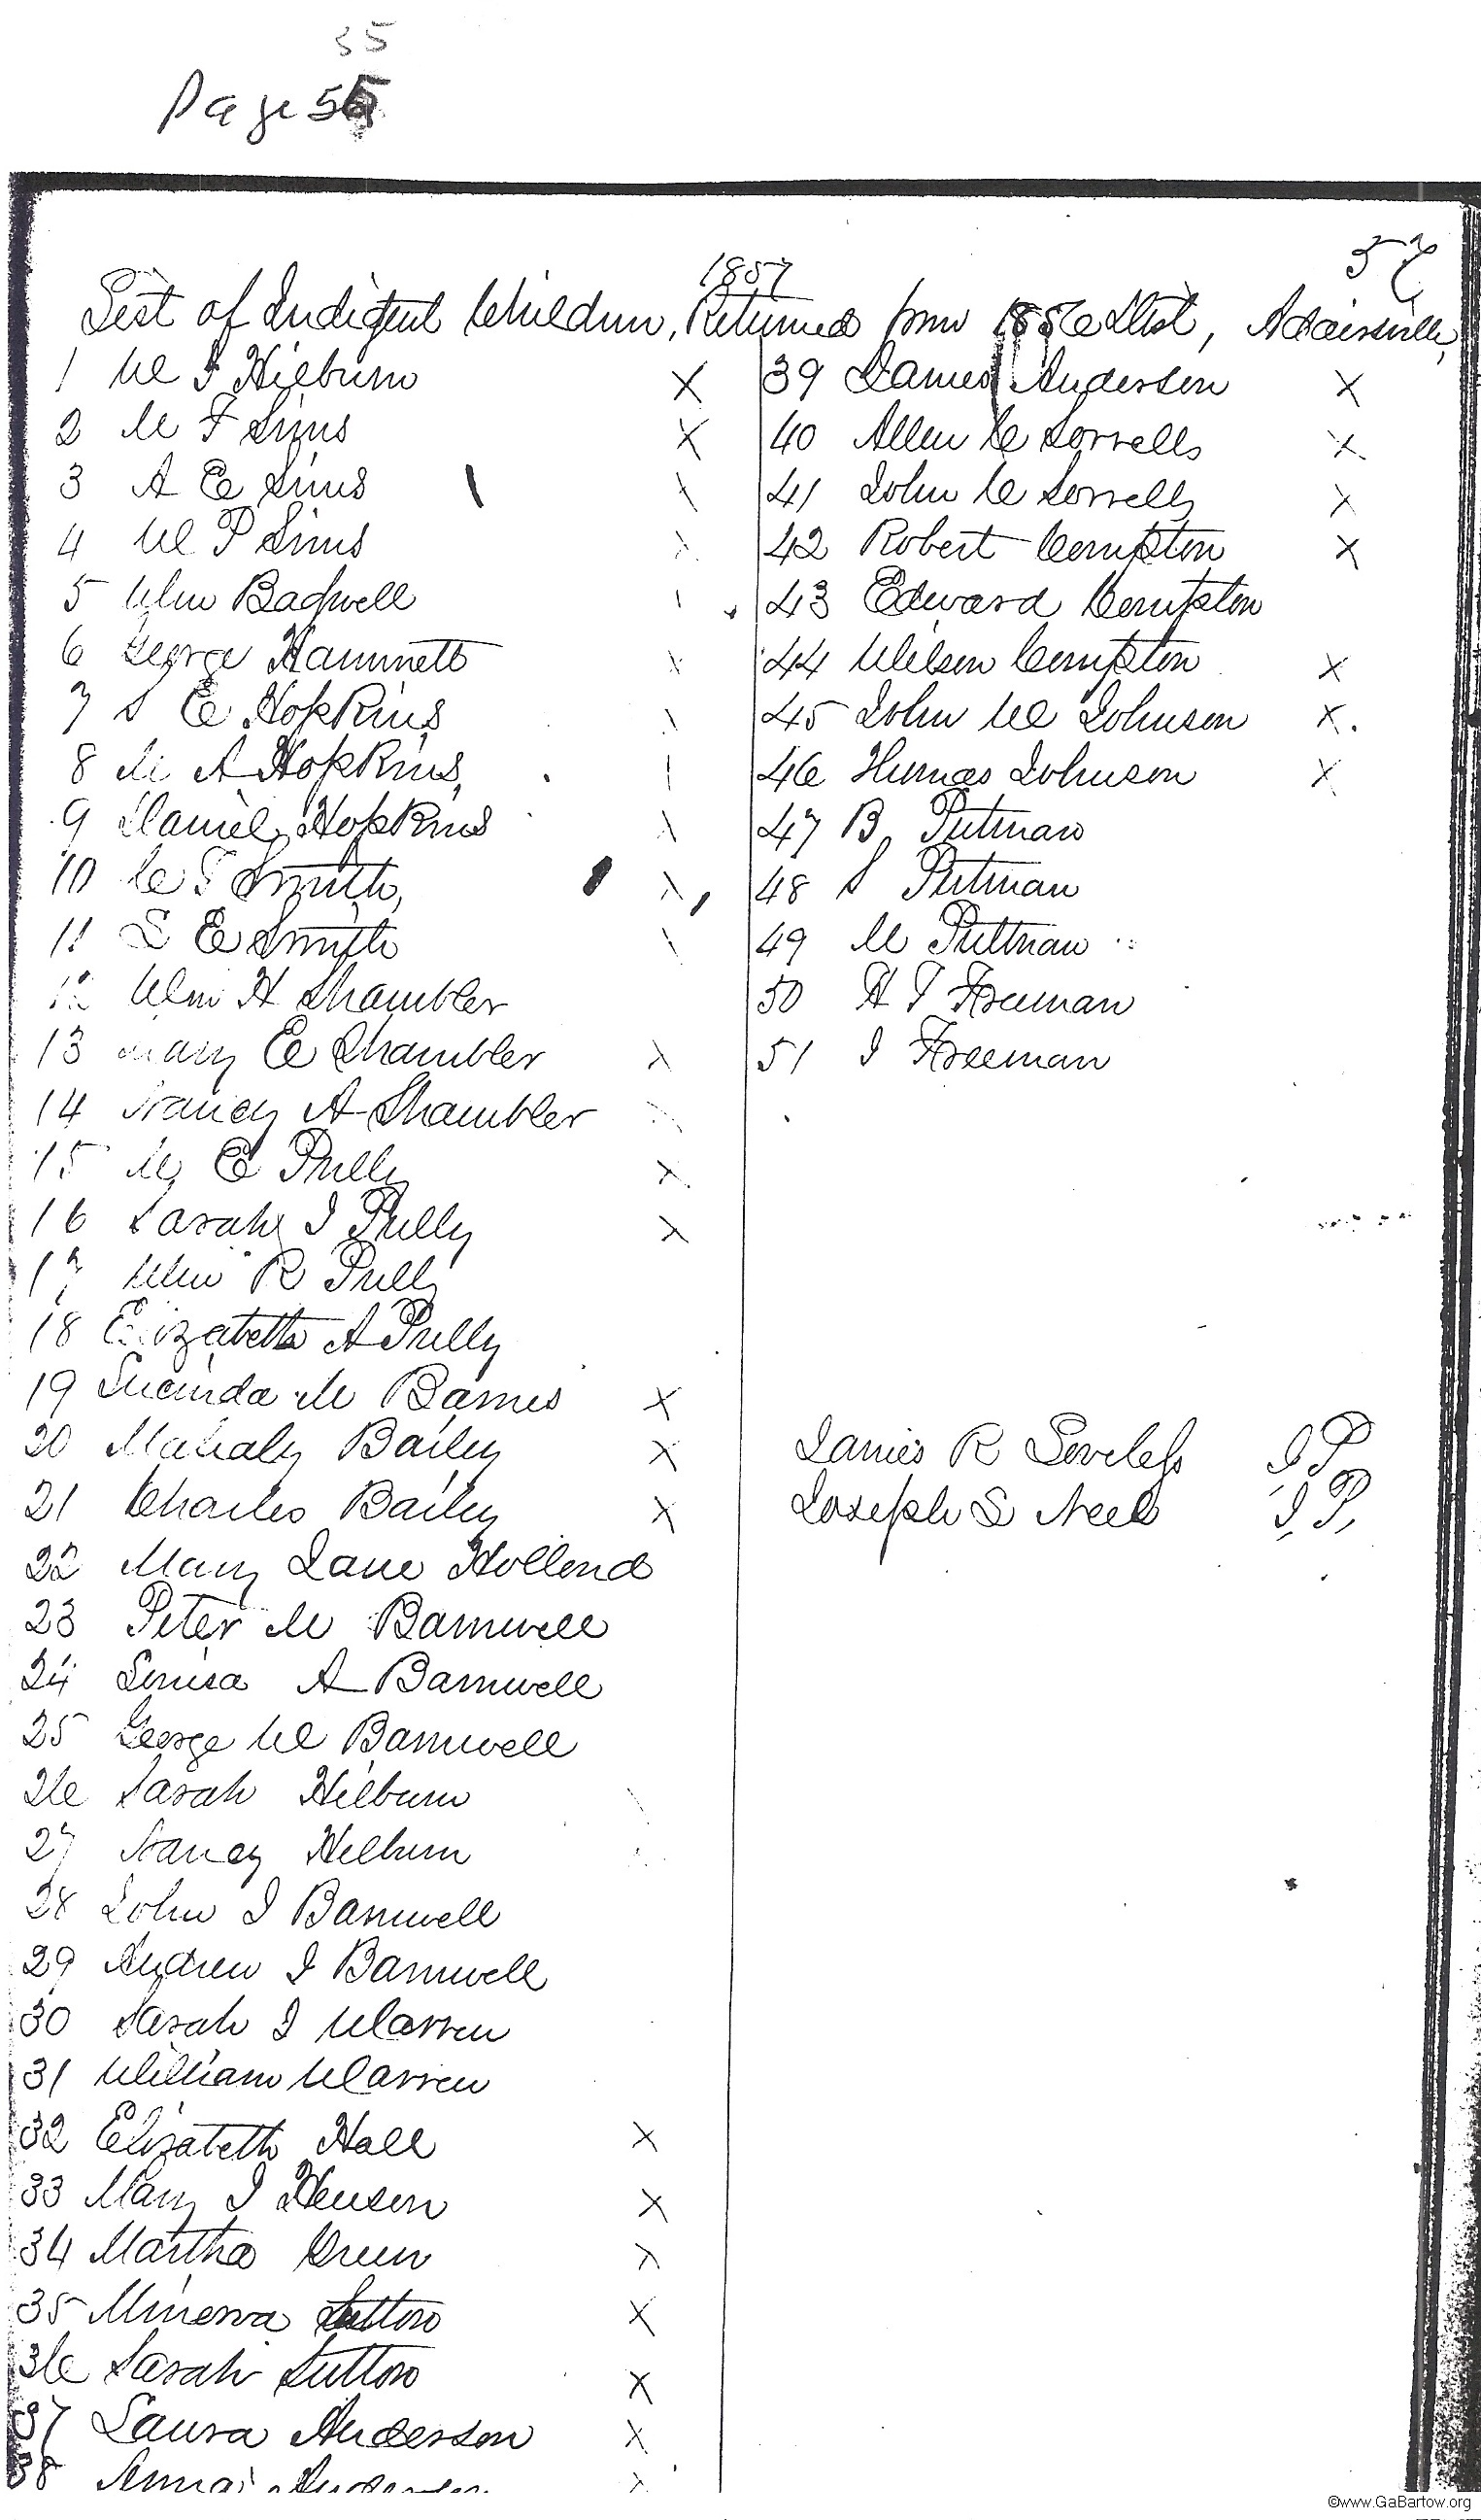 35
Page 55
57
1857
List of Indigent Children, Returned from 1856 Dist, Adairsville,
1 W F Hilburn X
2 M F Sims X
3 A E Sims
4 W P Sims
5 Wm Bagwell
6 George Hammett
7 S E Hopkins
8 M A Hopkins
9 Daniel Hopkins
10 C F Smith,
11 L E Smith
12 Wm H Shambler
13 Mary E Shambler X
14 Nancy A Shambler
15 M E Pully X
16 Sarah J Pully X
17 Wm R Pully
18 Elizabeth A Pully
19 Lucinda M Barnes X
20 Mahaly Bailey X
21 Charles Bailey X
22 Mary Jane Hollend
23 Peter M Barnwell
24 Louisa A Barnwell
25 George W Barnwell
26 Sarah Hilburn
27 Nancy Hilburn
28 John J Barnwell
29 Andrew J Barnwell
30 Sarah J Warren
31 William Warren
32 Elizabeth Hall X
33 Mary J Henson X
34 Martha Green X
35 Minerva Sutton X
36 Sarah Sutton X
37 Laura Anderson X
38 Anna Anderson X
39 James Anderson X
40 Allen C Sorrells X
41 John C Sorrells X
42 Robert Compton X
43 Edward Compton
44 Wilson Compton X
45 John W Johnson X.
46 Johnson X
47 B Putman
48 S Putman
49 M Puttman
50 H T Freeman
51 J Freeman
James R Loveless J P
Joseph S Neel J.P.
©www.GaBartow.org